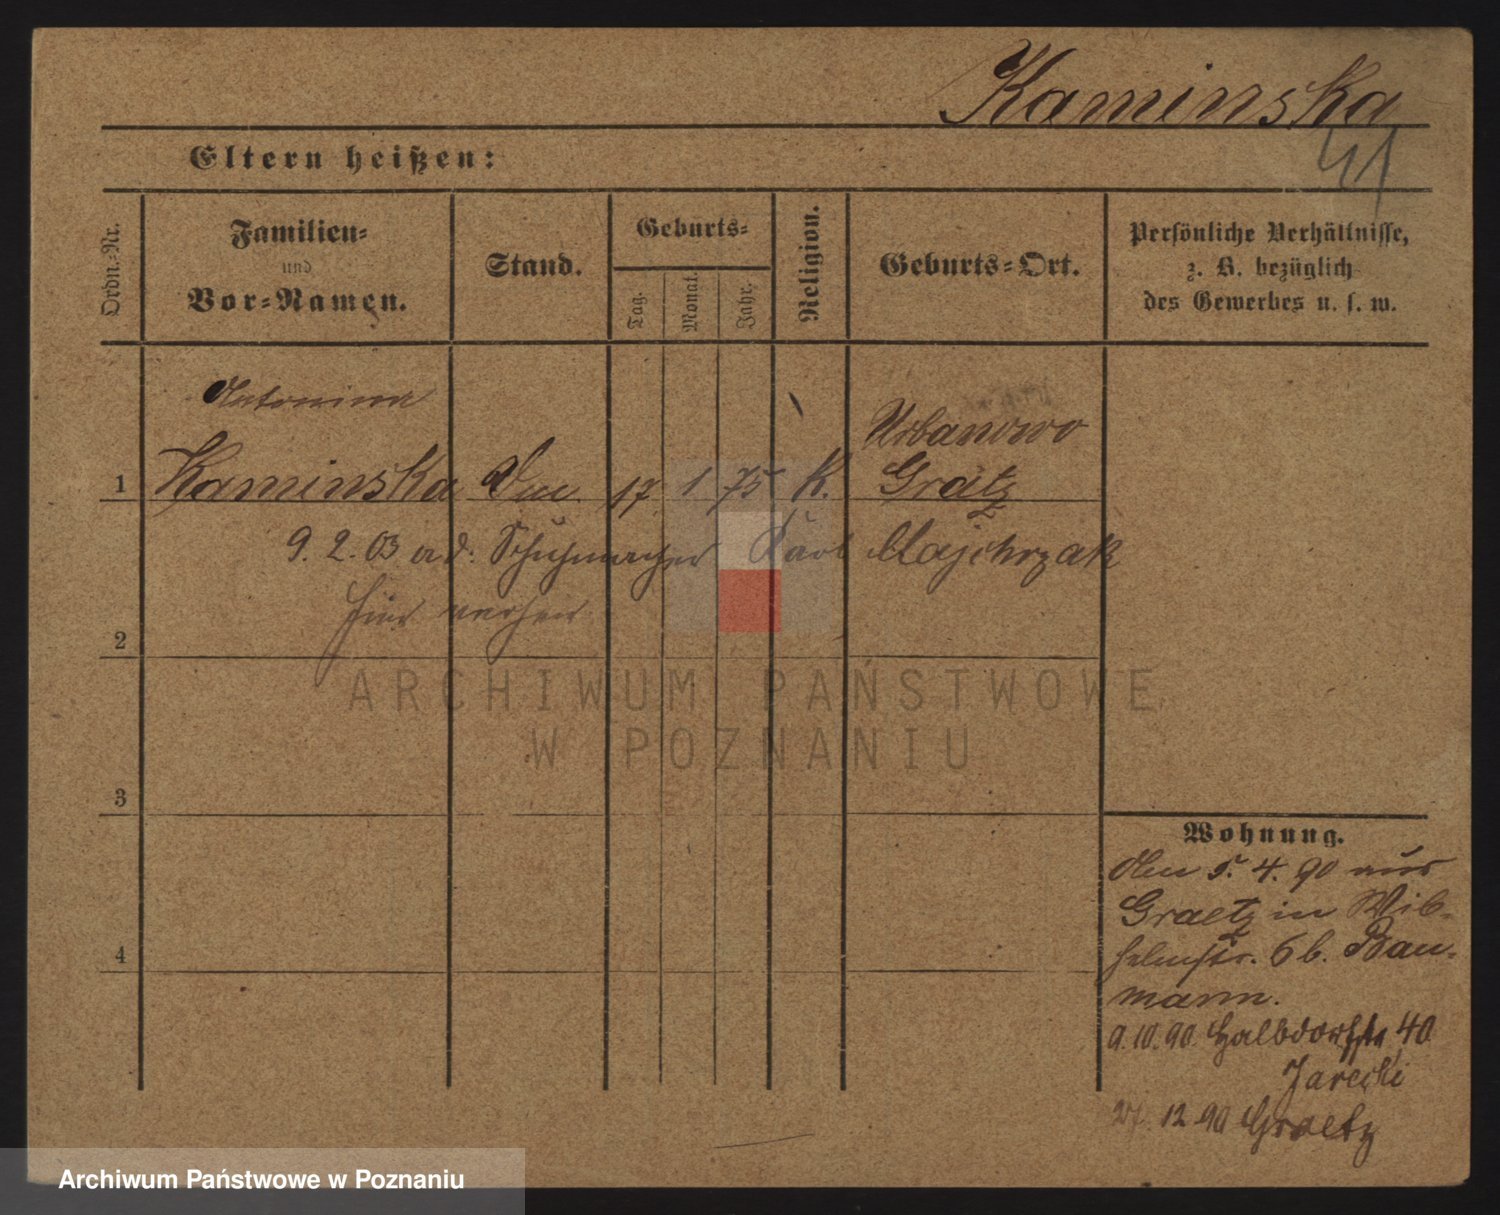 Kaminska
41
Eltern heißen:
Ordn.-Nr.
Familien-
und
Vor-Namen.
Stand.
Geburts-
Tag.
Monat.
Jahr.
Religion.
Geburts-Ort.
Persönliche Verhältnisse,
z. B. bezüglich
des Gewerbes u. s. w.
Antonina
Urbanowo
1 Kaminska 17. 1 75 K. Grätz
9. 2. 03 a. d. Schuhmacher Karl Majchrzak
hier verheir
2
ARCHIWUM PAŃSTWOWE
W POZNANIU
3
4
Wohnung.
Den 5. 4. 90 aus
Graetz in Wil-
helmstr. 6 b. Bau-
mann.
9. 10. 90. Halbdorfstr 40
Jarecki
27. 12 90 Graetz
Archiwum Państwowe w Poznaniu